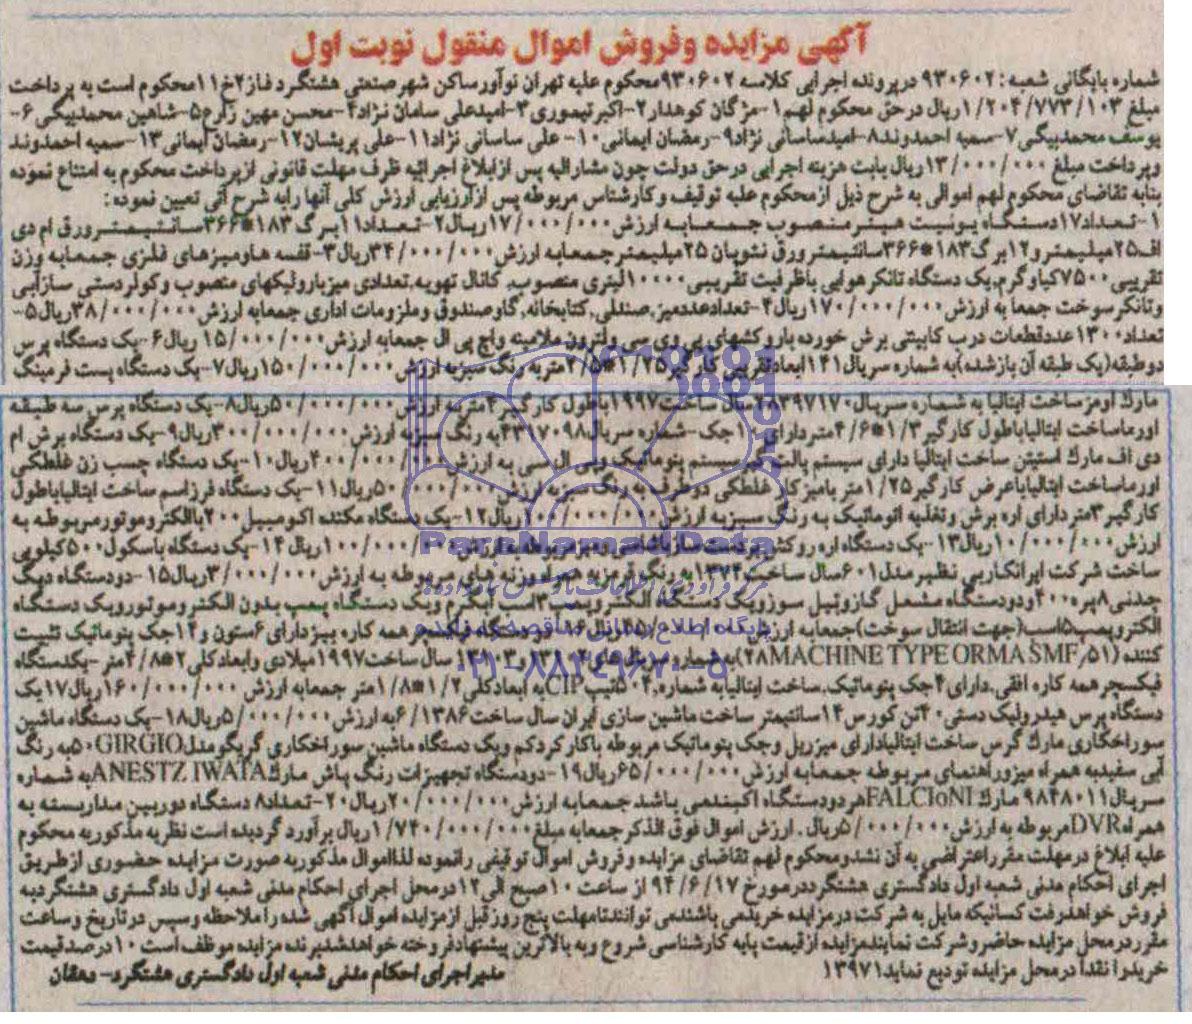 آگهی مزایده وفروش اموال منقول نوبت اول
شماره بایگانی شعبه: ۹۳۰۶۰۲ درپرونده اجرایی کلاسه ۹۳۰۶۰۲محکوم علیه تهران نوآورساکن شهرصنعتی هشتگرد فاز۲خ۱۱محکوم است به پرداخت
مبلغ ۱/۲۰۴/۷۷۳/۱۰۳ریال درحق محکوم لهم۱-مژگان کوهدار۲-اکبرتیموری۳-امیدعلی سامان نژاد۴-محسن مهین زارع۵-شاهین محمدبیگی۶-
یوسف محمدبیگی۷-سمیه احمدوند۸-امیدساسانی نژاد۹-رمضان ایمانی۱۰-علی ساسانی نژاد۱۱-علی پریشان۱۲-رمضان ایمانی۱۳-سمیه احمدوند
وپرداخت مبلغ ۱۳/۰۰۰/۰۰۰ریال بابت هزینه اجرایی درحق دولت چون مشارالیه پس ازابلاغ اجرائیه ظرف مهلت قانونی ازپرداخت محکوم به امتناع نموده
بنابه تقاضای محکوم لهم اموالی به شرح ذیل ازمحکوم علیه توقیف وکارشناس مربوطه پس ازارزیابی ارزش کلی آنها رابه شرح آتی تعیین نموده:
۱-تعداد۱۷دستگاه یونیت هیترمنصوب جمعابه ارزش۱۷/۰۰۰/۰۰۰ریال۲-تعداد۱۱برگ ۱۸۳*۳۶۶سانتیمترورق ام دی
اف۲۵میلیمترو۱۲برگ۱۸۳*۳۶۶سانتیمترورق نئوپان ۲۵میلیمترجمعابه ارزش۳۴/۰۰۰/۰۰۰ریال۳-قفسه هاومیزهای فلزی جمعابه وزن
تقریبی۷۵۰۰کیلوگرم,یک دستگاه تانکرهوایی باظرفیت تقریبی۱۰۰۰۰لیتری منصوب, کانال تهویه,تعدادی میزبارولیکهای منصوب وکولردستی سازآبی
وتانکرسوخت جمعا به ارزش۱۷۰/۰۰۰/۰۰۰ریال۴-تعدادعددمیز,صندلی,کتابخانه,گاوصندوق وملزومات اداری جمعابه ارزش۳۸/۰۰۰/۰۰۰ریال۵-
تعداد۱۳۰۰عددقطعات درب کابینتی برش خورده باروکشهای پی وی سی,پاترون,ملامینه واچ پی ال جمعابه ارزش۱۵/۰۰۰/۰۰۰ ریال۶-یک دستگاه پرس
دوطبقه(یک طبقه آن بازشده)به شماره سریال۱۴۱ابعادتقریبی کارگیر۱/۲۵*۲/۵متربه رنگ سبزبه ارزش۱۵۰/۰۰۰/۰۰۰ریال۷-یک دستگاه پست فرمینگ
مارک اومزساخت ایتالیا به شماره سریال۲۸۳۹۷۱۷۰سال ساخت۱۹۹۷باطول کارگیر۳متربه ارزش۵۰/۰۰۰/۰۰۰ریال۸-یک دستگاه پرس سه طبقه
اورماساخت ایتالیاباطول کارگیر۱/۳*۴/۶متردارای۱۰جک-شماره سریال۲۳۱۷۰۹۸به رنگ سبزبه ارزش۳۰۰/۰۰۰/۰۰۰ریال۹-یک دستگاه برش ام
دی اف مارک استیتن ساخت ایتالیا دارای سیستم پالت گیر,سیستم پنوماتیک وپی ال سی به ارزش۴۰۰/۰۰۰/۰۰۰ریال۱۰-یک دستگاه چسب زن غلطکی
اورماساخت ایتالیاباعرض کارگیر۱/۲۵متر بامیزکار غلطکی دوطرف به رنگ سبزبه ارزش۵۰/۰۰۰/۰۰۰ریال۱۱-یک دستگاه فرزاسم ساخت ایتالیاباطول
کارگیر۳متردارای اره برش وتغذیه اتوماتیک به رنگ سبزبه ارزش /۰۰۰/۰۰۰ریال۱۲-یک دستگاه مکنده اکومبیل۲۰۰باالکتروموتورمربوطه به
ارزش۱۰/۰۰۰/۰۰۰ریال۱۳-یک دستگاه اره روکش بردست سازباشاسی ومیزمربوطه به ارزش۱۰۰/۰۰۰/۰۰۰ریال۱۴-یک دستگاه باسکول۵۰۰کیلویی
ساخت شرکت ایرانکاربی نظیرمدل۶۰۱سال ساخت۱۳۷۴به رنگ قرمزبه همراه وزنه های مربوطه به ارزش۳/۰۰۰/۰۰۰ریال۱۵-دودستگاه دیگ
چدنی۸پره۴۰۰ودودستگاه مشعل گازوئیل سوزویک دستگاه الکتروپمپ۳اسب آبگرم ویک دستگاه پمپ بدون الکتروموتورویک دستگاه
الکتروپمپ۵اسب(جهت انتقال سوخت)جمعابه ارزش ریال۱۶-دودستگاه فیکسچرهمه کاره پرزدارای۶ستون و۱۲جک پنوماتیک تثبیت
کننده (۲۸MACHINE TYPE ORMA SMF,۵۱)به شماره سریال های سال ساخت۱۹۹۷میلادی وابعادکلی۲*۴/۸متر-یکدستگاه
فیکسچرهمه کاره افقی,دارای۴جک پنوماتیک,ساخت ایتالیابه شماره۵۰۴,تیپCIPبه ابعادکلی۱/۲*۱/۸متر جمعابه ارزش ۱۶۰/۰۰۰/۰۰۰ریال۱۷یک
دستگاه پرس هیدرولیک دستی۴۰تن کورس۱۴سانتیمتر ساخت ماشین سازی ایران سال ساخت۶/۱۳۸۶به ارزش۵/۰۰۰/۰۰۰ریال۱۸-یک دستگاه ماشین
سوراخکاری مارک گرس ساخت ایتالیادارای میزریل وجک پنوماتیک مربوطه باکارکردکم ویک دستگاه ماشین سوراخکاری گریگومدلGIRGIO۵۰به رنگ
آبی سفیدبه همراه میزوراهنمای مربوطه جمعابه ارزش۶۵/۰۰۰/۰۰۰ریال۱۹-دودستگاه تجهیزات رنگ پاش مارکANESTZ IWATAبه شماره
سریال۹۸۴۸۰۱۱ مارک FALCIoNIهردودستگاه اکبندمی باشد جمعابه ارزش۲۰/۰۰۰/۰۰۰ریال۲۰-تعداد۸ دستگاه دوربین مداربسته به
همراهDVRمربوطه به ارزش۵/۰۰۰/۰۰۰ریال. ارزش اموال فوق الذکرجمعابه مبلغ۱/۷۴۰/۰۰۰/۰۰۰ریال برآورد گردیده است نظریه مذکوربه محکوم
علیه ابلاغ درمهلت مقرراعتراضی به آن نشدومحکوم لهم تقاضای مزایده وفروش اموال توقیفی رانموده لذااموال مذکوربه صورت مزایده حضوری ازطریق
اجرای احکام مدنی شعبه اول دادگستری هشتگرددرمورخ ۹۴/۶/۱۷ از ساعت ۱۰صبح الی۱۲درمحل اجرای احکام مدنی شعبه اول دادگستری هشتگردبه
فروش خواهدرفت کسانیکه مایل به شرکت درمزایده خریدمی باشندمی توانندتامهلت پنج روزقبل ازمزایده اموال آگهی شده راملاحظه وسپس درتاریخ وساعت
مقرردرمحل مزایده حاضروشرکت نمایندمزایده ازقیمت پایه کارشناسی شروع وبه بالاترین پیشنهادفروخته خواهدشدبرنده مزایده موظف است ۱۰درصدقیمت
خریدرا نقدآ درمحل مزایده تودیع نماید۱۳۹۷۱
مدیراجرای احکام مدنی شعبه اول دادگستری هشتگرد-دهقان
ParsNamadData
پایگاه اطلاع رسانی مناقصه و مزایده
۰۲۱-۸۸۳۴۹۶۷۰-۵